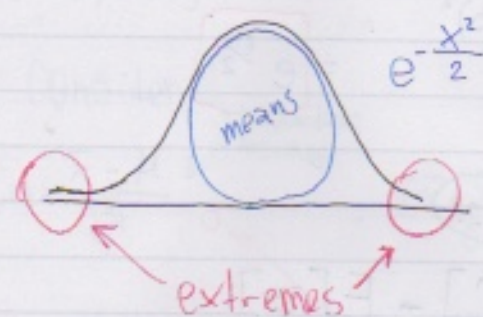 e^-x²/2
means
extremes